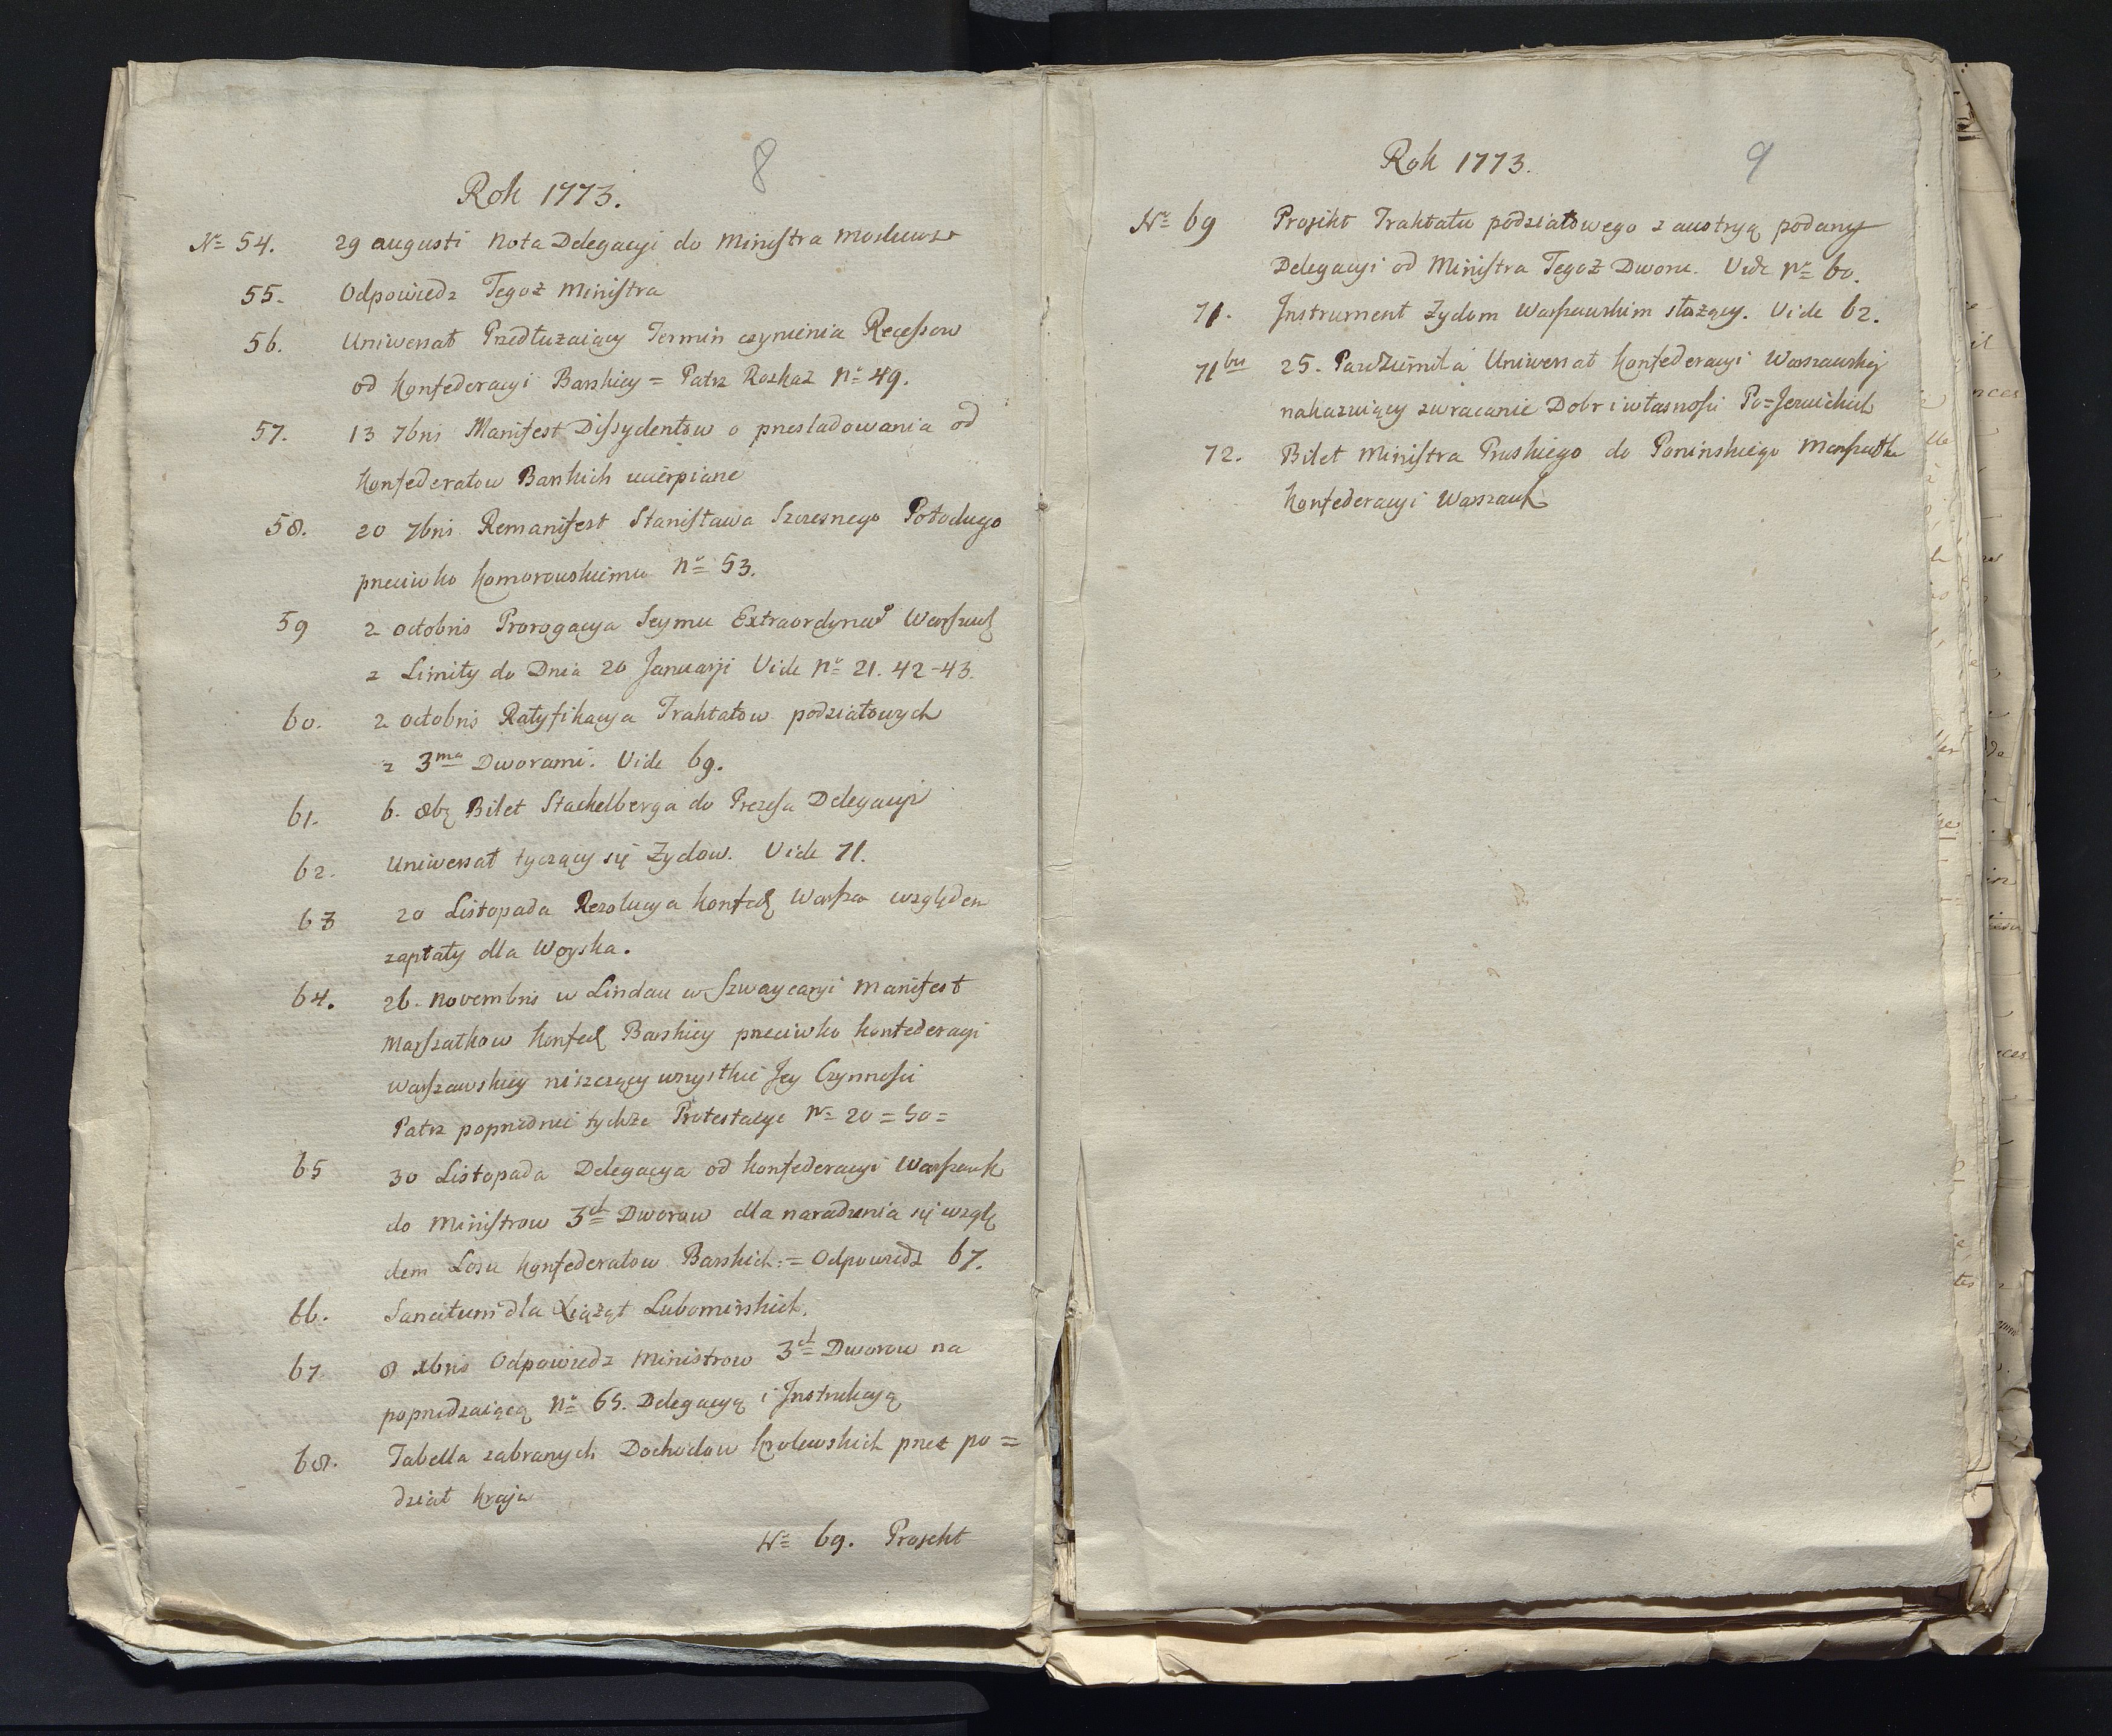 8
Rok 1773.
Nº 54. 29 augusti Nota Delegacyi do Ministra Moskiewsk
55. Odpowiedz Tegoż Ministra
56. Uniwersał Przedłużaiący Termin czynienia Recessow
od Konfederacyi Barskiey = Patrz Rozkaz Nº 49.
57. 13 7bris Manifest Dissydentow o przesladowania od
Konfederatow Barskich ucierpiane
58. 20 7bris Remanifest Stanisława Szczesnego Potockiego
przeciwko Komorowskiemu Nº 53.
59 2 octobris Prorogacya Seymu Extraordynar Warszaws
z Limity do Dnia 20 Januarji Vide Nº 21. 42-43.
60. 2 octobris Ratyfikacya Traktatow podziałowych
z 3ma Dworami. Vide 69.
61. 6. 8bris Bilet Stackelberga do Prezesa Delegacyi
62. Uniwersał tyczący się Zydow. Vide 71.
63 20 Listopada Rezolucya Konfed Warsza względem
zapłaty dla Woyska.
64. 26. Novembris w Lindau w Szwaycaryi Manifest
Marszałkow Konfed Barskiey przeciwko Konfederacyi
Warszawskiey niszczący wszystkie Jey Czynnosci
Patrz poprzednie tychże Protestacye Nº 20 = 50 =
65 30 Listopada Delegacya od Konfederacyi Warszawsk
do Ministrow 3ch Dworow dla naradzenia się wzglę
dem Losu Konfederatow Barskich. = Odpowiedz 67.
66. Sancitum dla Xiążąt Lubomirskich.
67. 8 xbris Odpowiedz Ministrow 3ch Dworow na
poprzedzaiącą Nº 65. Delegacyą i Instrukcyą
68. Tabella zabranych Dochodow Krolewskich przez po =
dział Kraju
Nº 69. Projekt
9
Rok 1773.
Nº 69 Projekt Traktatu podziałowego z austryą podany
Delegacyi od Ministra Tegoż Dworu. Vide Nº 60.
71. Instrument Zydom Warszawskim służący. Vide 62.
71bis 25. Pazdziernika Uniwersał Konfederacyi Warszawskiej
nakazuiący zwracanie Dobr i własnosci Po=Jezuickich
72. Bilet Ministra Pruskiego do Ponińskiego Marszałka
Konfederacyi Warszawk